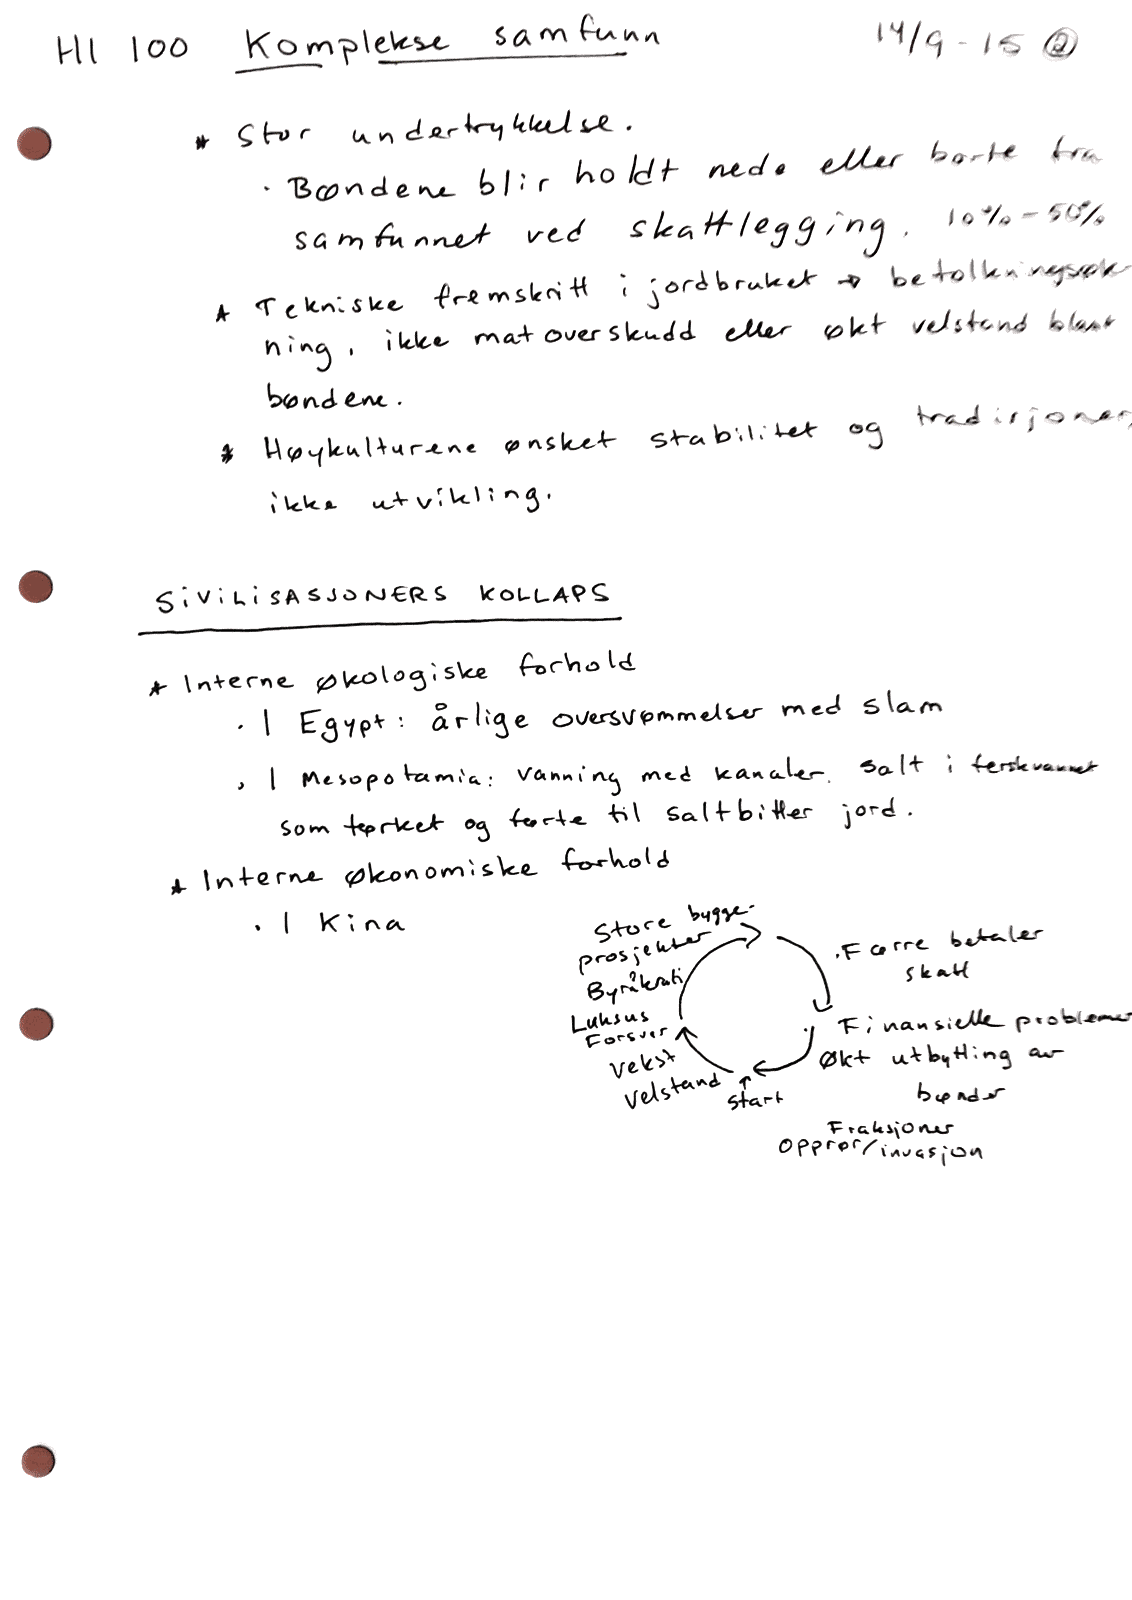 HI 100 Komplekse samfunn 14/9-15 2
* Stor undertrykkelse.
· Bøndene blir holdt nede eller borte fra
samfunnet ved skattlegging. 10%-50%
* Tekniske fremskritt i jordbruket → befolkningsøk
ning, ikke matoverskudd eller økt velstand blant
bøndene.
* Høykulturene ønsket stabilitet og tradisjoner,
ikke utvikling.
SIVILISASJONERS KOLLAPS
* Interne økologiske forhold
· I Egypt: årlige oversvømmelser med slam
· I Mesopotamia: vanning med kanaler. Salt i ferskvannet
som tørket og førte til saltbitter jord.
* Interne økonomiske forhold
· I Kina
Store bygge-
prosjekter
Byråkrati
Luksus
Forsvar
Vekst
Velstand
Start
· Færre betaler
skatt
Finansielle problemer
Økt utbytting av
bønder
Fraksjoner
Opprør/invasjon